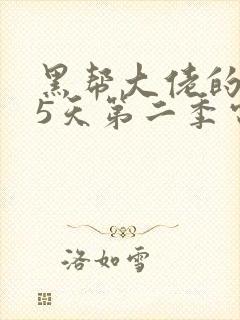 黑帮大佬的
5天第二季
洛如雪